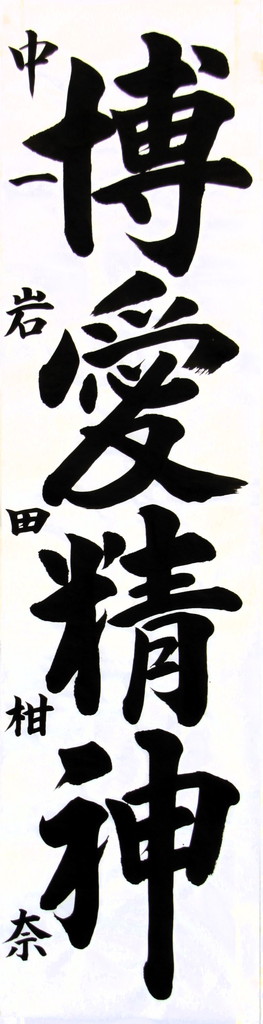 博愛精神
中一 岩田柑奈